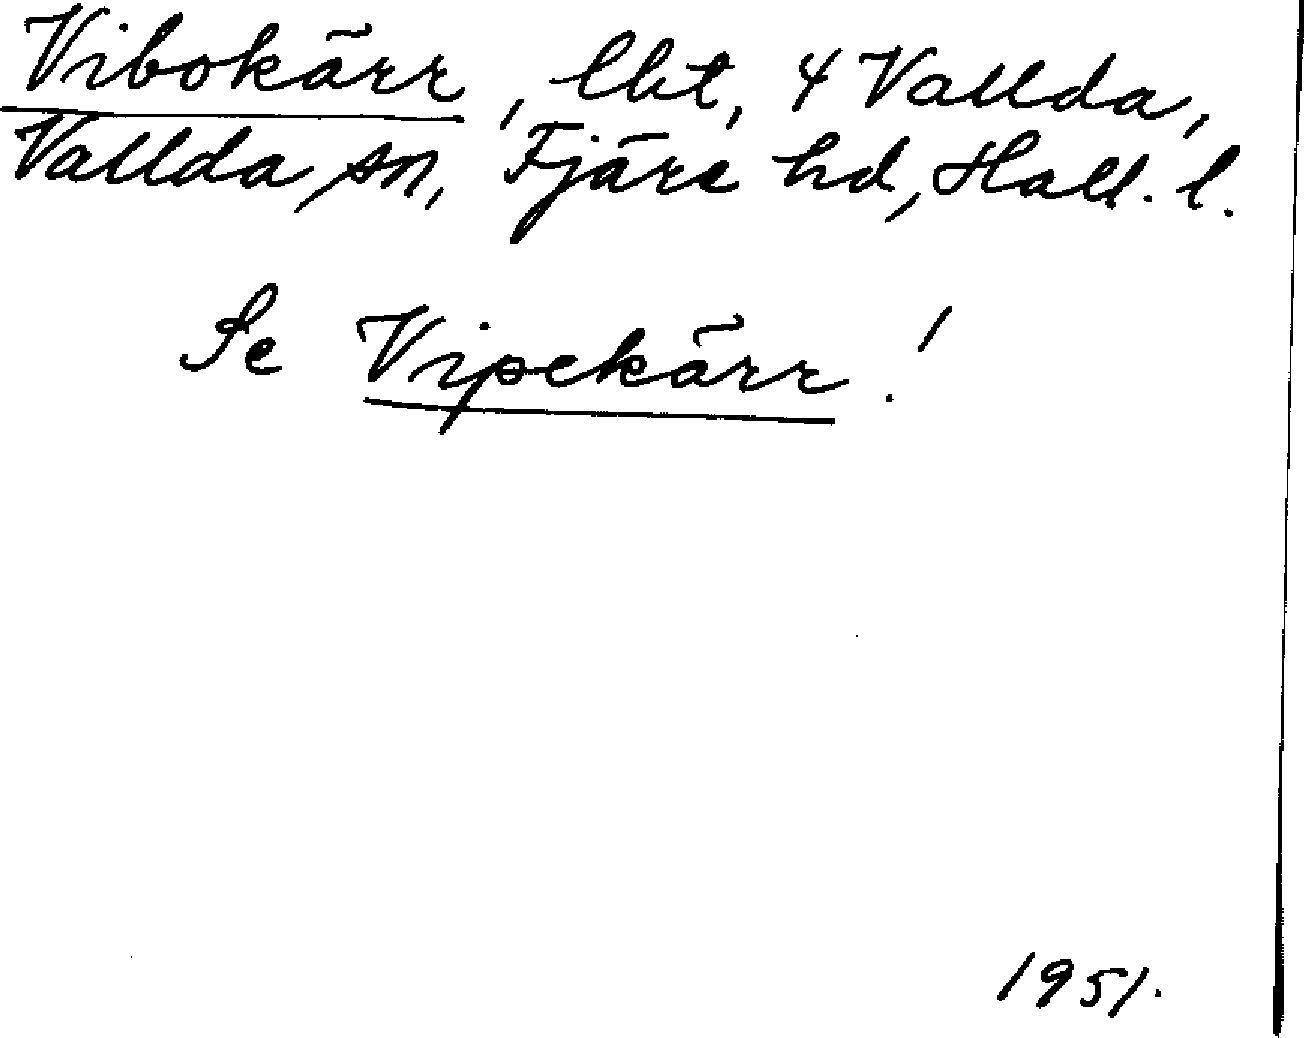 Vibokärr, lht, 4 Vallda,
Vallda sn, Fjäre hd, Hall. l.
Se Vipekärr!
1951.